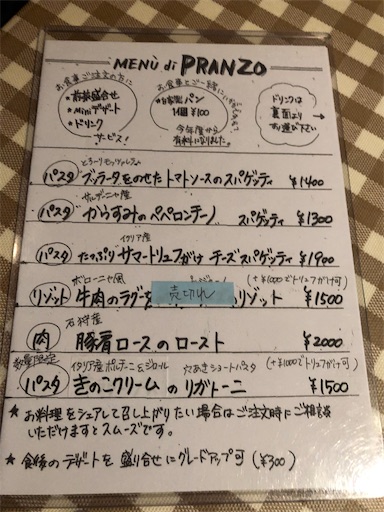 MENÙ di PRANZO
お食事ご注文の方に
★前菜盛合せ
★miniデザート
★ドリンク
サービス!
お食事とご一緒に
★自家製パン
1個 ¥100
今年度から
有料になりました。
ドリンクは
裏面より
お選び下さい
とろーりモッツァレラの
パスタ ブッラータをのせたトマトソースのスパゲッティ ¥1400
サルデーニャ産
パスタ からすみのペペロンチーノ スパゲッティ ¥1300
イタリア産
パスタ たっぷりサマートリュフがけ チーズスパゲッティ ¥1900
ボローニャ風 (+¥1000でトリュフがけ可)
リゾット 牛肉のラグーを 売切れ のリゾット ¥1500
石狩産
肉 豚肩ロースのロースト ¥2000
数量限定 イタリア産ポルチーニ& 穴あきショートパスタ (+¥1000でトリュフがけ可)
パスタ きのこクリームのリガトーニ ¥1500
★お料理をシェアして召し上がりたい場合はご注文時にご相談
いただけますとスムーズです。
★食後のデザートを盛り合せにグレードアップ可(¥300)